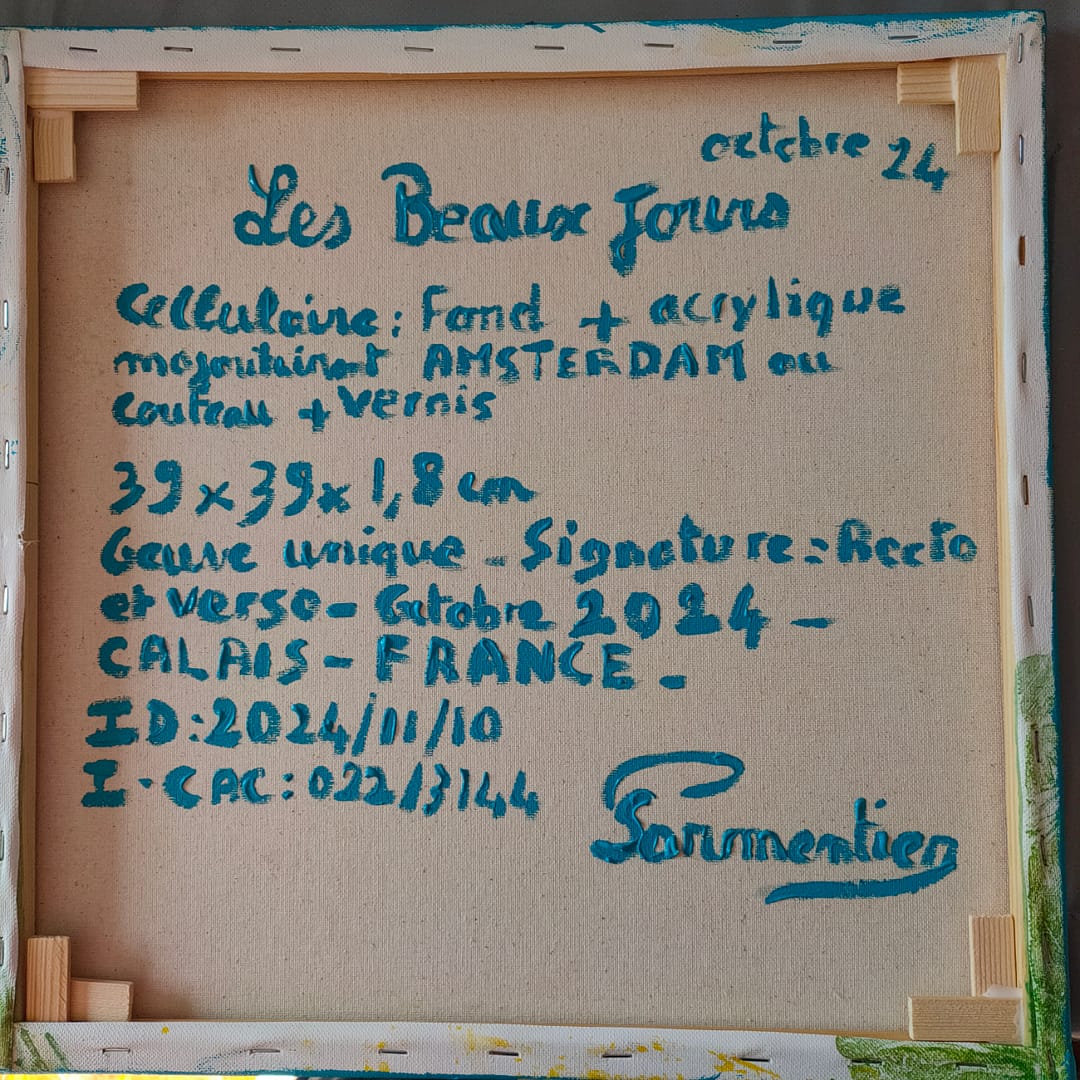 octobre 24
Les Beaux Jours
Cellulaire : Fond + acrylique
majoritairent AMSTERDAM au
couteau + vernis
39 x 39 x 1,8 cm
Oeuvre unique - Signature : Recto
et verso - Octobre 2024 -
CALAIS - FRANCE -
ID : 2024/11/10
I-CAC : 022/3144
Parmentier